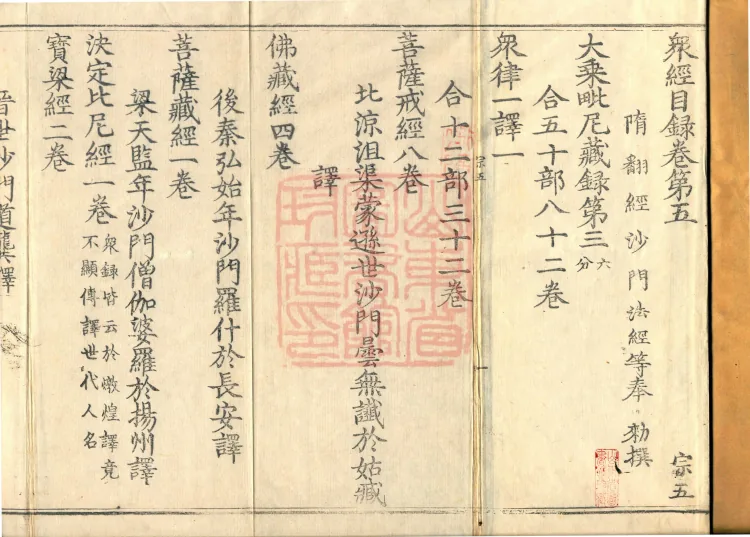 眾經目録卷第五 宗五
隋翻經沙門法經等奉勑撰
大乘毗尼藏録第三六分
合五十部八十二卷
眾律一譯一
合十二部三十二卷
宗五
菩薩戒經八卷
北涼沮渠蒙遜世沙門曇無讖於姑臧
譯
佛藏經四卷
後秦弘始年沙門羅什於長安譯
菩薩藏經一卷
梁天監年沙門僧伽婆羅於揚州譯
決定比尼經一卷眾録皆云於燉煌譯竟
不顯傳譯世代人名
寶梁經二卷
晉世沙門道龔譯